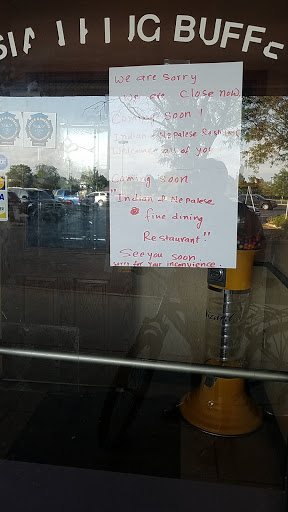 BUFFE
We are sorry
We are close now
Coming Soon!
Indian & Nepalese Restaurant
Welcome all of you
Coming Soon
"Indian & Nepalese
fine dining
Restaurant!"
See you soon
Sorry for your inconvience.